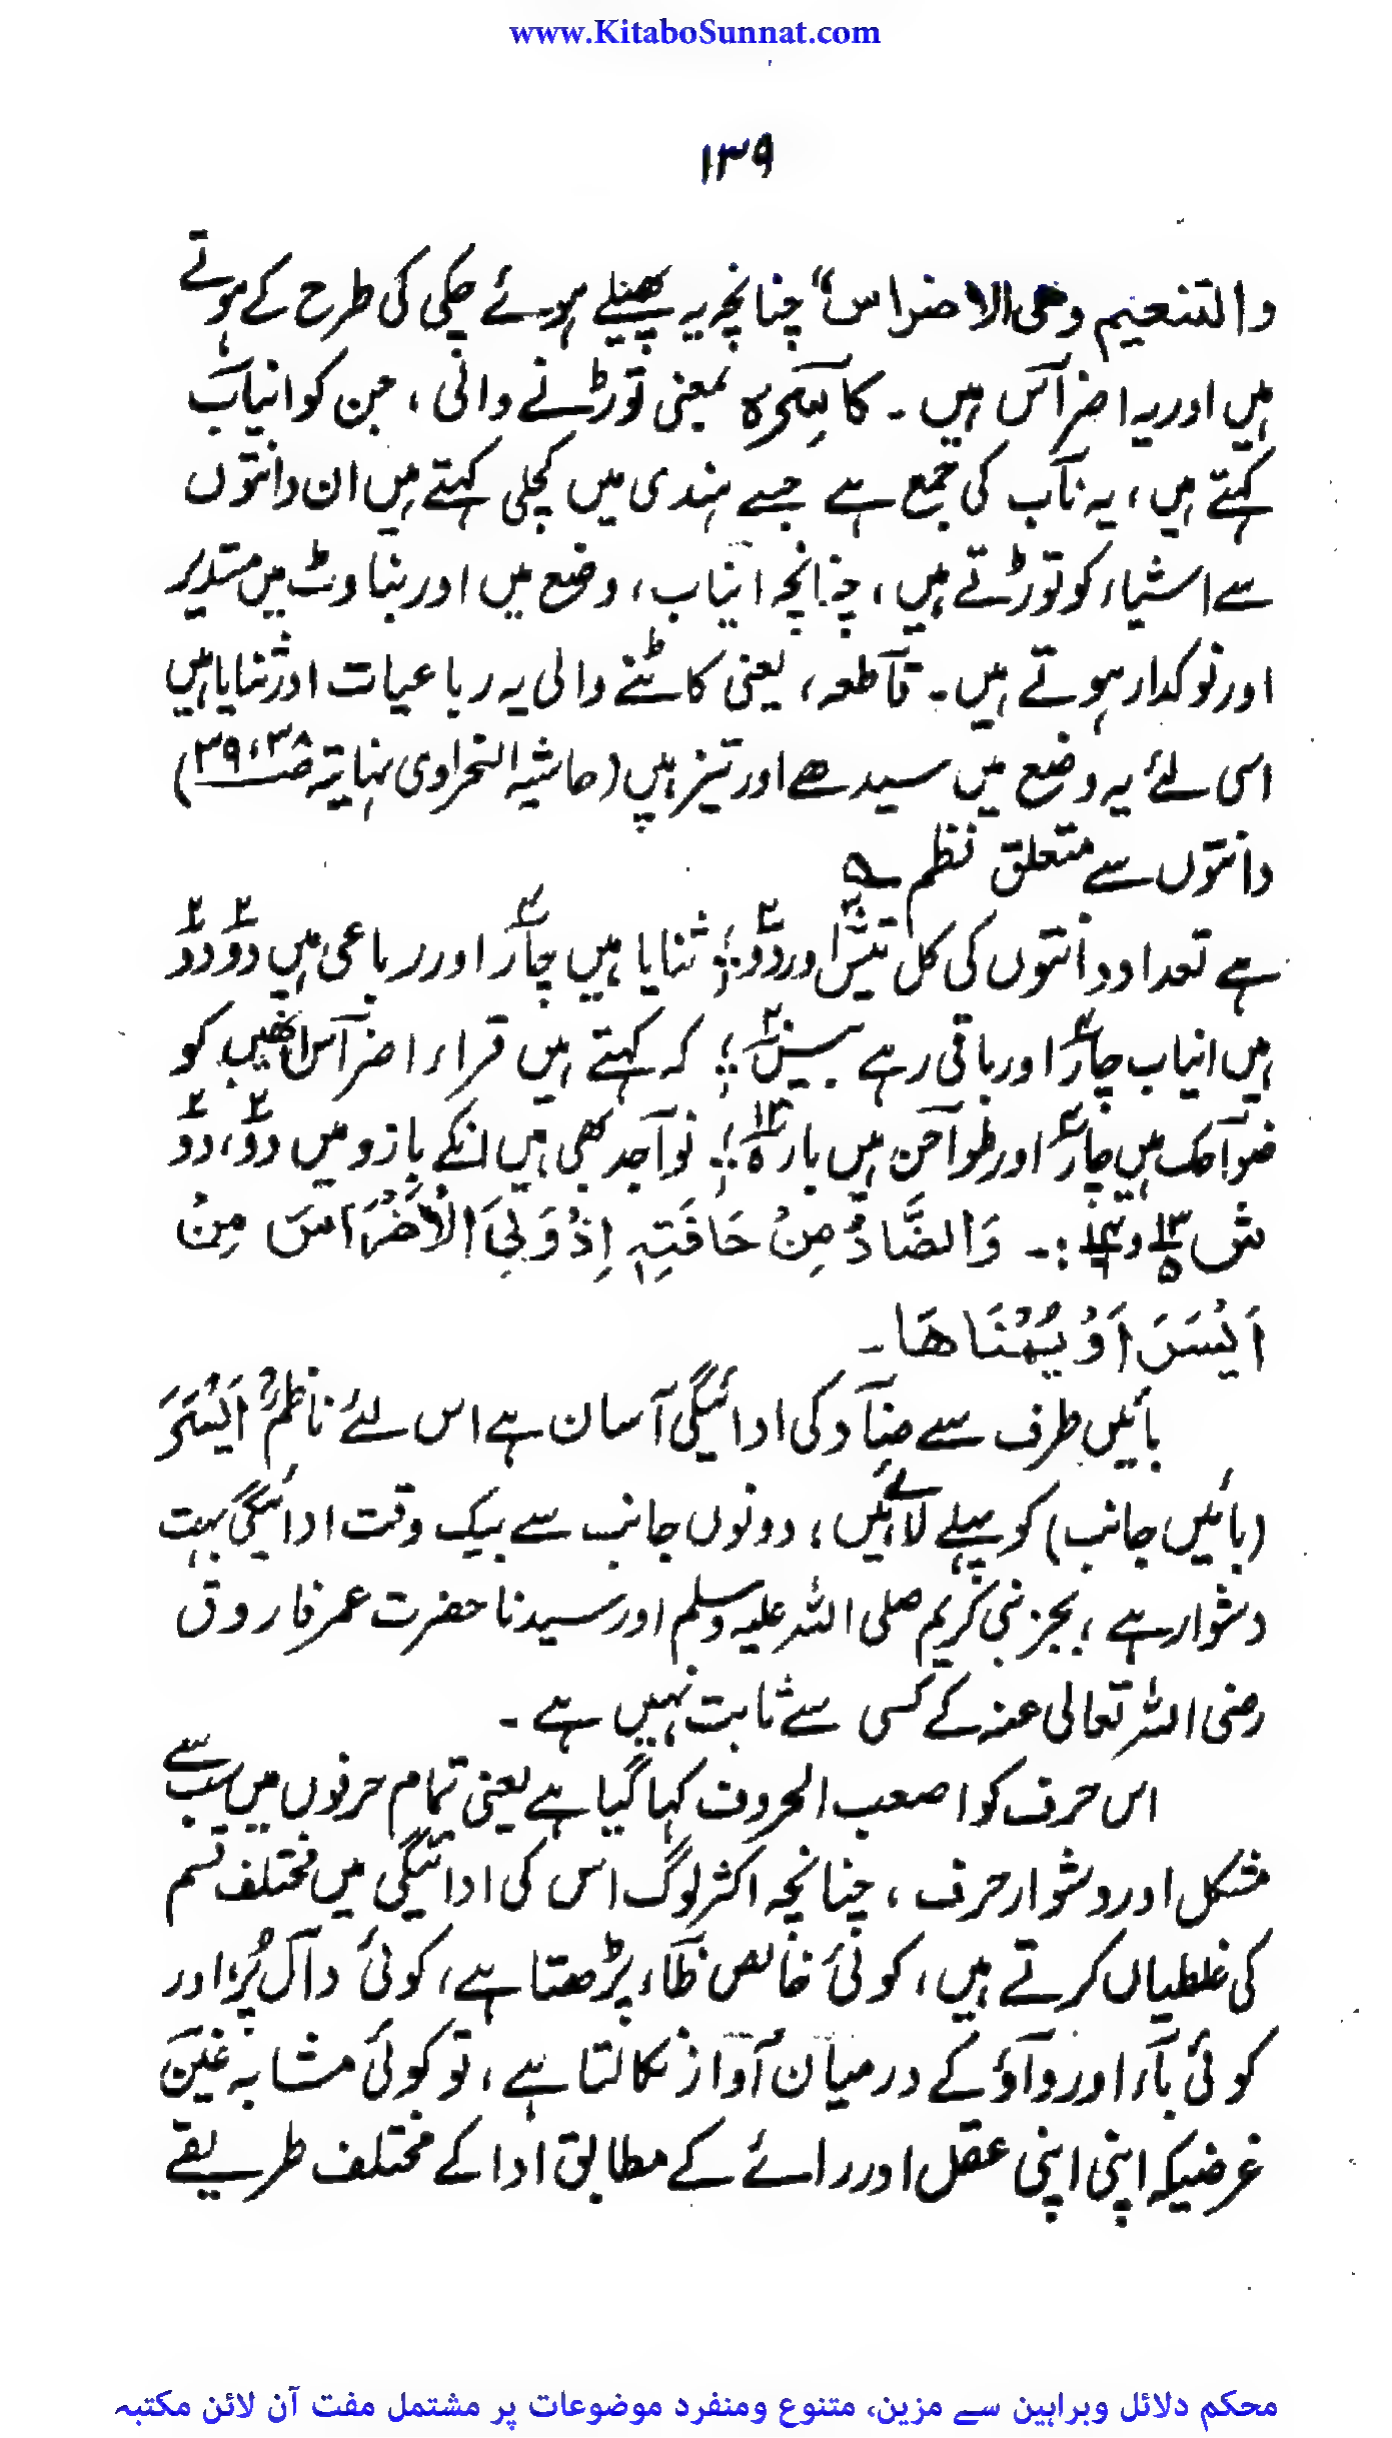 www.KitaboSunnat.com
۱۳۹
والتنعیم وھی الاضراس“ چنانچہ یہ پھیلے ہوئے چکی کی طرح کے ہوتے
ہیں اور یہ اضراس ہیں ۔ کاسرہ بمعنی توڑنے والی ، جن کو انیاب
کہتے ہیں ، یہ ناب کی جمع ہے جسے ہندی میں کچلی کہتے ہیں ان دانتوں
سے اشیاء کو توڑتے ہیں ، چنانچہ انیاب ، وضع میں اور بناوٹ میں مستدیر
اور نوکدار ہوتے ہیں ۔ قاطعہ ، یعنی کاٹنے والی یہ رباعیات اور ثنایا ہیں
اسی لئے یہ وضع میں سیدھے اور تیز ہیں (حاشیہ النحراوی نہایۃ ص ۳۸، ۳۹)
دانتوں سے متعلق نظم ؎
ہے تعداد دانتوں کی کل تیس۳۰ اور دو۲ ؛ ثنایا ہیں چار۴ اور رباعی ہیں دو۲ دو۲
ہیں انیاب چار۴ اور باقی رہے بیس۲۰ ؛ کہ کہتے ہیں قراء اضراس انھیں کو
ضواحک ہیں چار۴ اور طواحن ہیں بارہ۱۲ ؛ نواجذ بھی ہیں انکے بازو میں دو۲، دو۲
ش ۱۳/۵ و ۱۴/۶ :۔ وَالضَّادُ مِنْ حَافَتِہٖ اِذْ وَلِیَا الْاَضْرَاسَ مِنْ
اَیْسَرَ اَوْ یُمْنَاھَا ۔
بائیں طرف سے ضاد کی ادائیگی آسان ہے اس لئے ناظمؒ اَیْسَرَ
(بائیں جانب) کو پہلے لائے ہیں ، دونوں جانب سے بیک وقت ادائیگی بہت
دشوار ہے ، بجز نبی کریم صلی اللہ علیہ وسلم اور سیدنا حضرت عمر فاروق
رضی اللہ تعالی عنہ کے کسی سے ثابت نہیں ہے ۔
اس حرف کو اصعب الحروف کہا گیا ہے یعنی تمام حرفوں میں سب سے
مشکل اور دشوار حرف ، چنانچہ اکثر لوگ اس کی ادائیگی میں مختلف قسم
کی غلطیاں کرتے ہیں ، کوئی خالص ظاء پڑھتا ہے ، کوئی دال پُر ، اور
کوئی باء اور واؤ کے درمیان آواز نکالتا ہے ، تو کوئی مشابہ غین
غرضیکہ اپنی اپنی عقل اور رائے کے مطابق ادا کے مختلف طریقے
محکم دلائل وبراہین سے مزین، متنوع ومنفرد موضوعات پر مشتمل مفت آن لائن مکتبہ